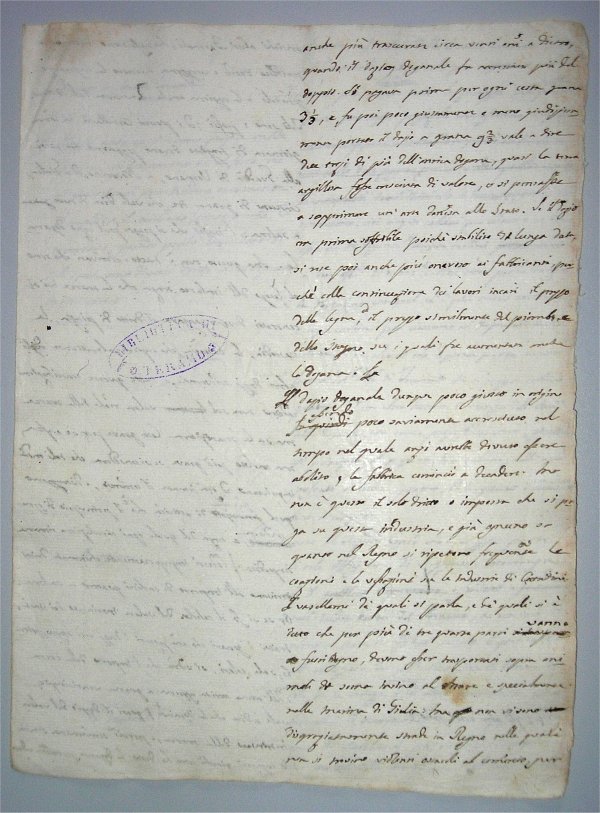 anche più trascurati circa venti anni a dietro,
quando il dazio Doganale fu accresciuto più del
doppio. Si pagava prima per ogni cesta grana
3 1/3, e fu poi poco giustamente e meno
portato il dazio a grana 9 2/3 vale a dire
due terzi di più dell'antica dogana, quasi la terra
argillosa fosse cresciuta di valore, o si pensasse
a sopprimere un'arte dannosa allo Stato. Se il dazio
era prima soffribile poichè stabilito da lunga data,
si rese poi anche più oneroso ai fabbricanti per
chè colla continuazione dei lavori incarì il prezzo
della legna, ed il prezzo similmente del piombo, e
dello stagno, su i quali fu aumentata molto
la Dogana.
Il dazio Doganale dunque poco giusto in origine
fu poco saviamente accresciuto nel
tempo nel quale anzi avrebbe dovuto essere
abolito, e la fabbrica cominciò a decadere. Ma
non è questo il solo dritto o imposta che si pa
ga su questa industria, e già ognuno sa
quanto nel Regno si ripetono frequenti le
e le vessazioni su le industrie di Cittadini
I vasellami de' quali si parla, e de' quali si è
detto che per più di tre quarte parti vanno
fuori Regno, devono esser trasportati sopra ani
mali da soma insino al mare e specialmente
nella marina di Giulia: ma non vi sono
disgraziatamente strade in Regno nelle quali
non si trovino ostacoli al comercio, per
BIBLIOTECA
TERAMO